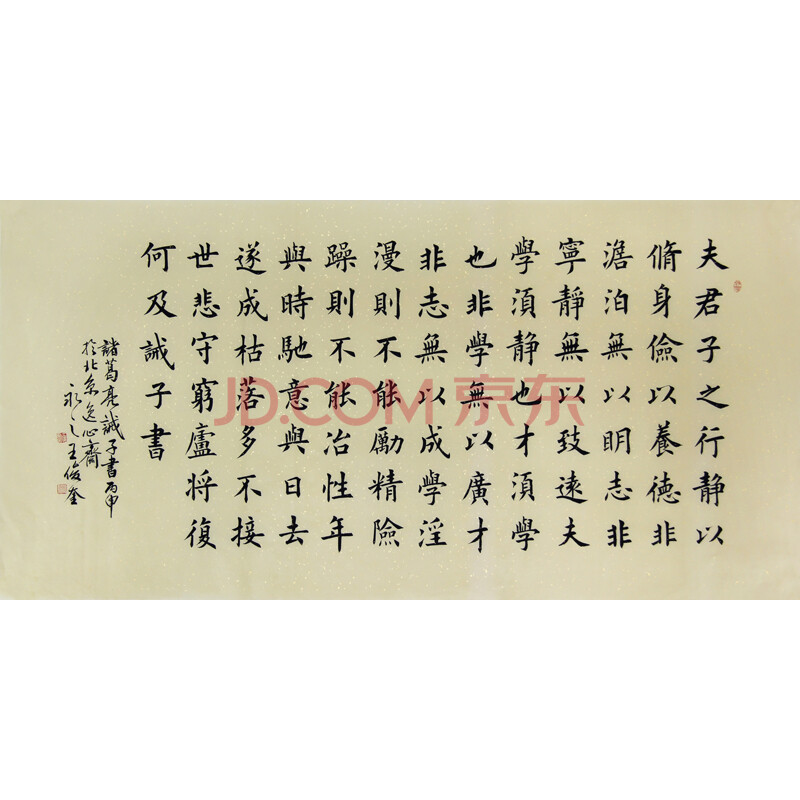 夫君子之行静以
脩身儉以養德非
澹泊無以明志非
寧静無以致遠夫
學須静也才須學
也非學無以廣才
非志無以成學淫
漫則不能勵精險
躁則不能冶性年
與時馳意與日去
遂成枯落多不接
世悲守窮廬将復
何及誡子書
諸葛亮誡子書丙申
於北京逸心齋
永之王俊奎
JD.COM 京东